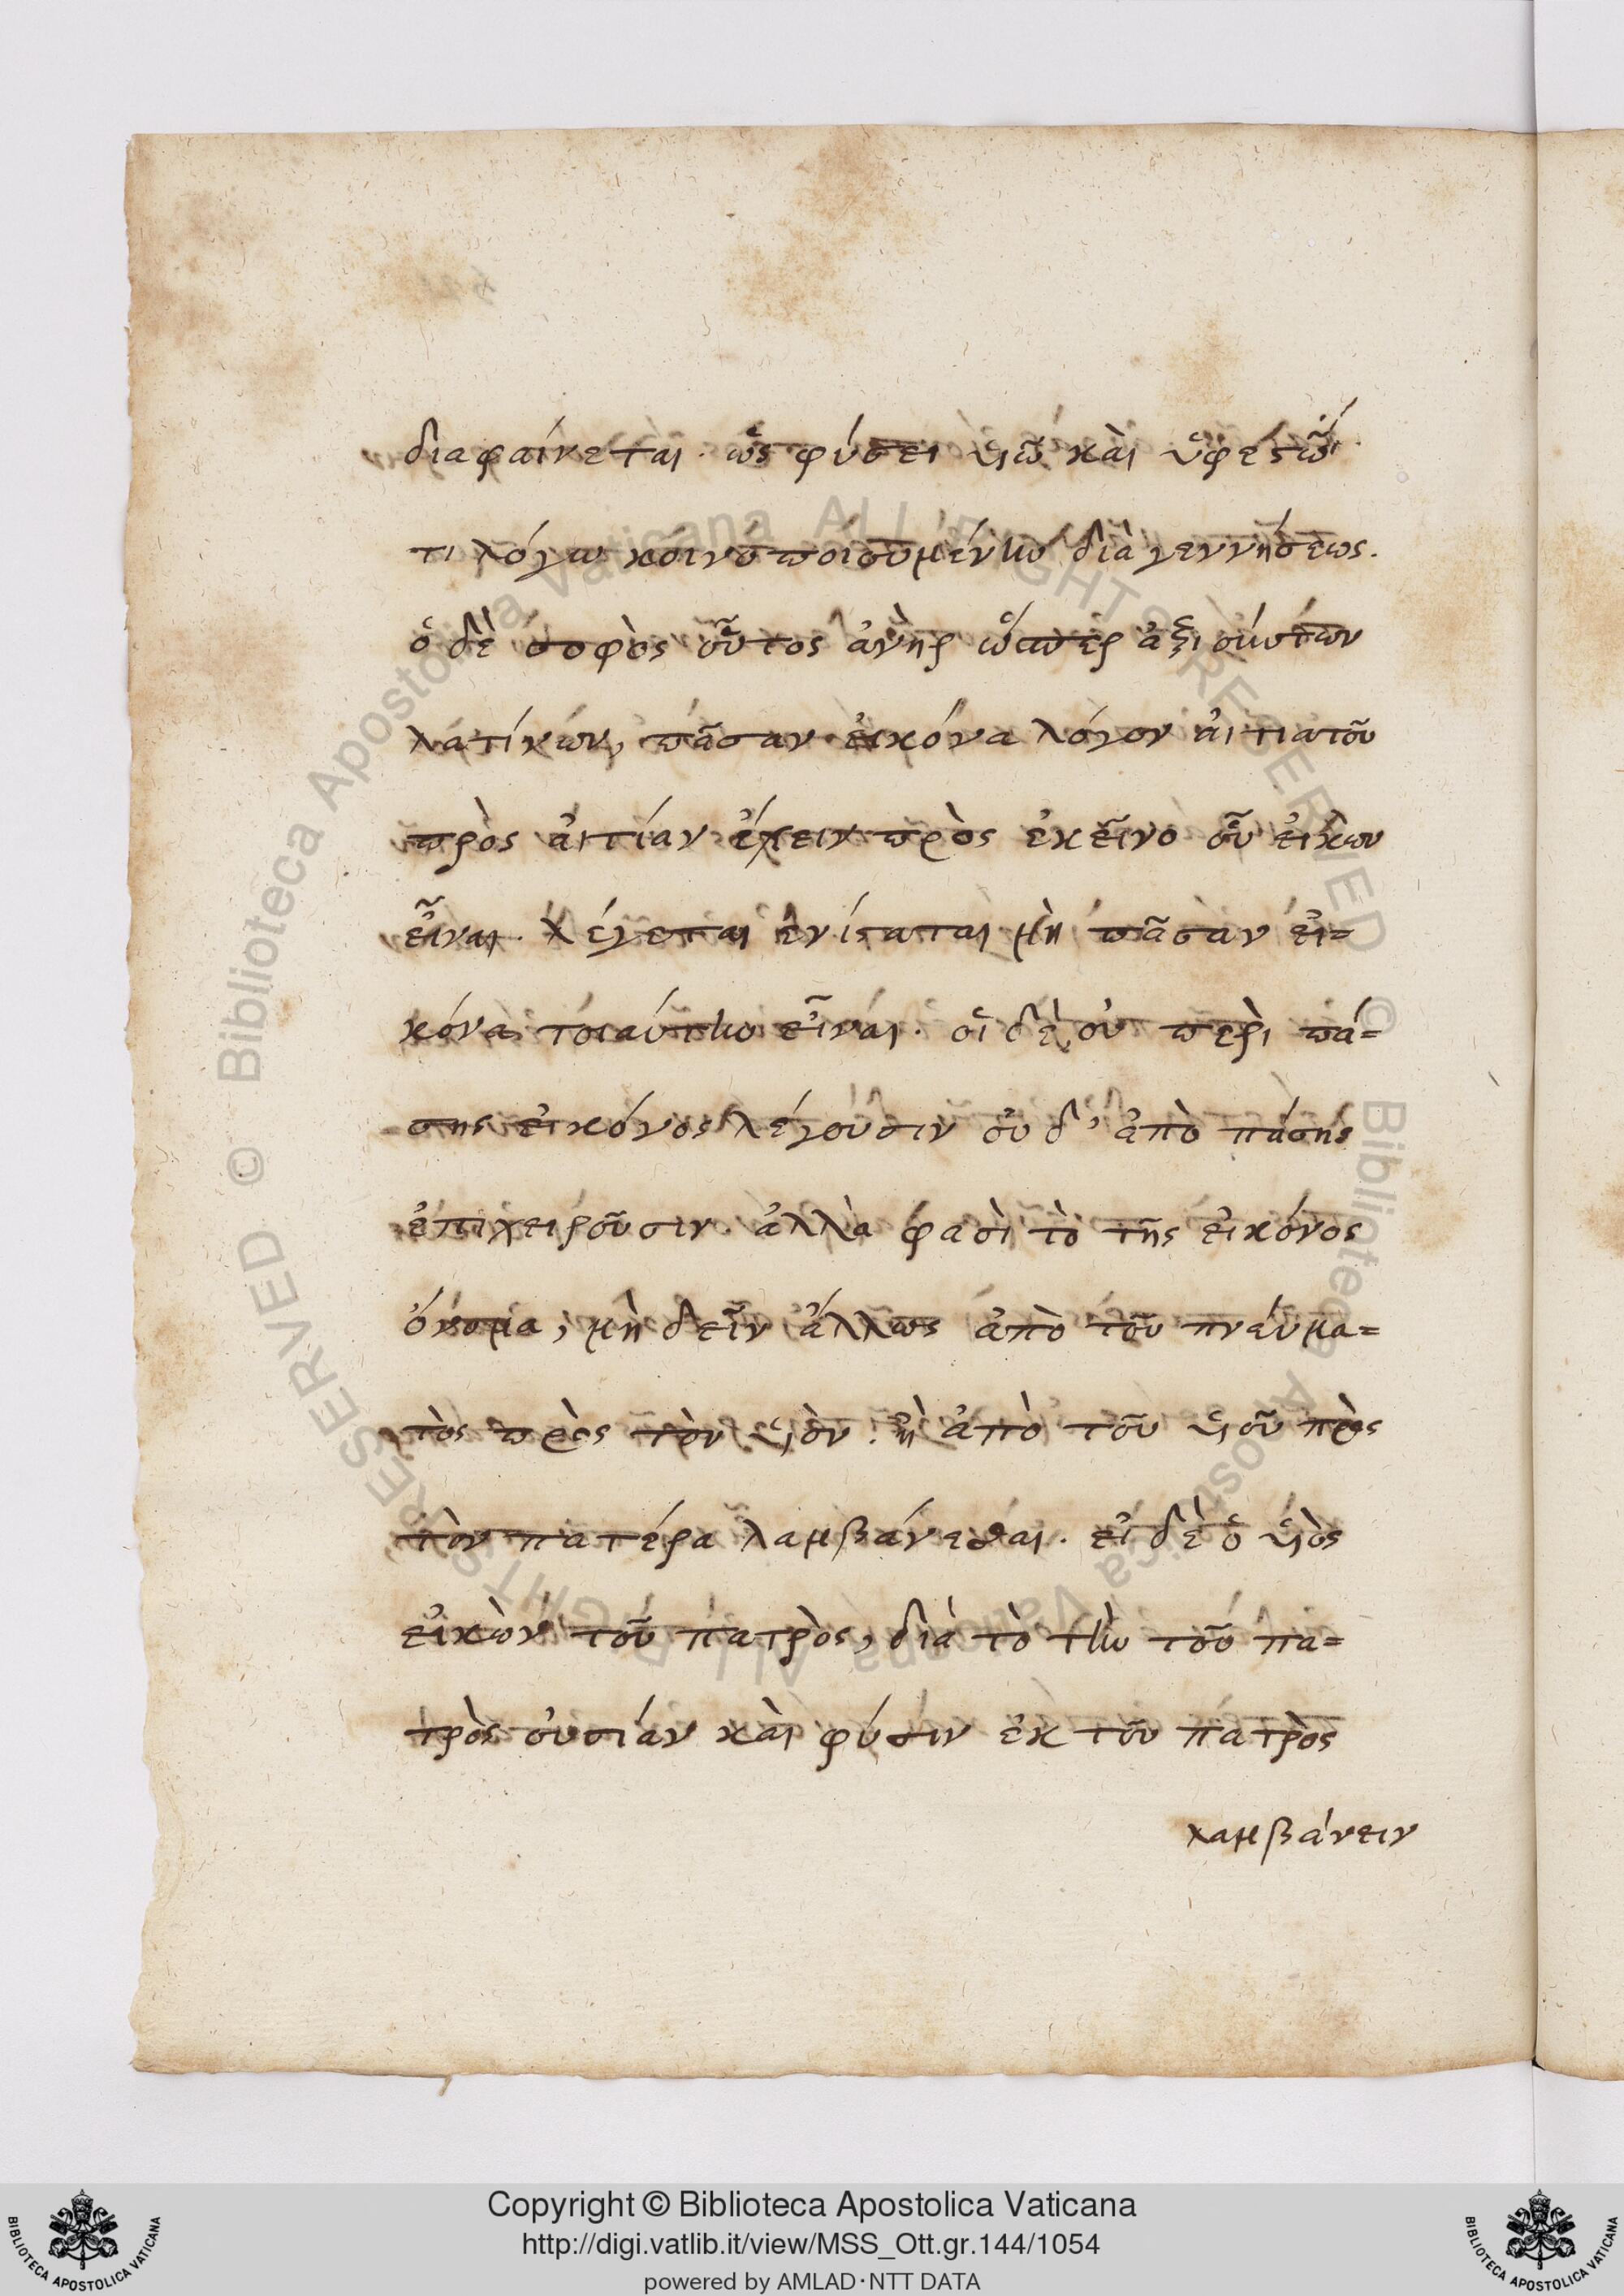 διαφαίνεται. ὡς φύσει υἱῷ καὶ ὑφεστῶ
τι λόγω κοινοποιουμένην διὰ γεννήσεως.
ὁ δὲ σοφὸς οὗτος ἀνὴρ ὥσπερ ἀξιούντων
λατίνων, πᾶσαν εἰκόνα λόγον αἰτιατοῦ
πρὸς αἰτίαν ἔχειν πρὸς ἐκεῖνο οὗ εἰκὼν
εἶναι λέγεται ἐνίσταται μὴ πᾶσαν εἰ=
κόνα τοιαύτην εἶναι. οἱ δὲ οὐ περὶ πά=
σης εἰκόνος λέγουσιν οὐδ' ἀπὸ πάσης
ἐπιχειροῦσιν. ἀλλὰ φασὶ τὸ τῆς εἰκόνος
ὄνομα, μὴ δεῖν ἄλλως ἀπὸ τοῦ πνεύμα=
τος πρὸς τὸν υἱὸν. ἢ ἀπὸ τοῦ υἱοῦ πρὸς
τὸν πατέρα λαμβάνεσθαι. εἰ δὲ ὁ υἱὸς
εἰκὼν τοῦ πατρὸς, διὰ τὸ τὴν τοῦ πα=
τρὸς οὐσίαν καὶ φύσιν ἐκ τοῦ πατρὸς
λαμβάνειν
© Biblioteca Apostolica Vaticana ALL RIGHTS RESERVED © Biblioteca Apostolica Vaticana ALL RIGHTS RESERVED
Copyright © Biblioteca Apostolica Vaticana
http://digi.vatlib.it/view/MSS_Ott.gr.144/1054
powered by AMLAD·NTT DATA
BIBLIOTECA APOSTOLICA VATICANA
BIBLIOTECA APOSTOLICA VATICANA